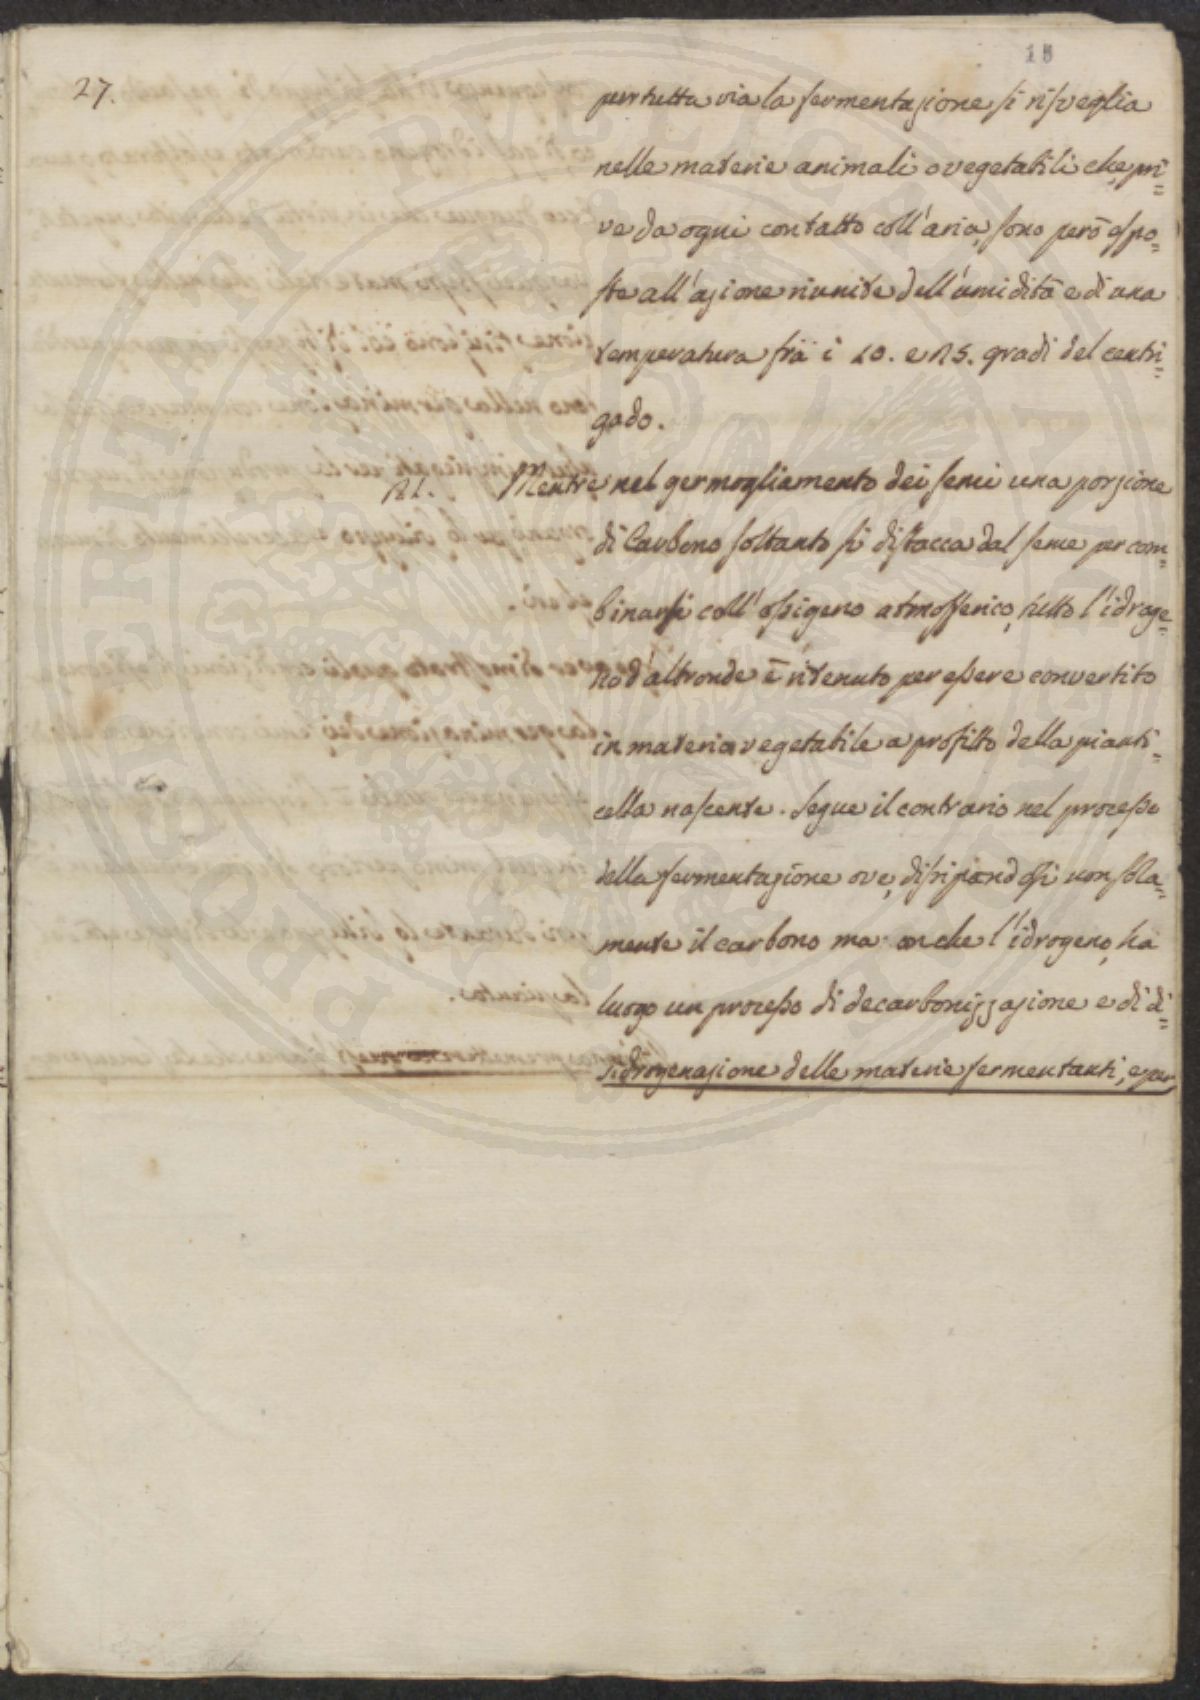 15
27.
pur tutta via la fermentazione si risveglia
nelle materie animali o vegetabili che, pri=
ve da ogni contatto coll'aria, sono però espo=
ste all'azione riunite dell'umidità e di una
temperatura frà i 10. e 25. gradi del centi=
gado.
21. Mentre nel germogliamento dei semi una porzione
di Carbono soltanto si distacca dal seme per com=
binarsi coll'ossigeno atmosferico, tutto l'idroge=
no d'altronde è ritenuto per essere convertito
in materia vegetabile a profitto della pianti=
cella nascente. Segue il contrario nel processo
della fermentazione ove, dissipandosi non sola=
mente il carbono ma anche l'idrogeno, ha
luogo un processo di decarbonizzazione e di di=
sidrogenazione delle materie fermentanti, e per